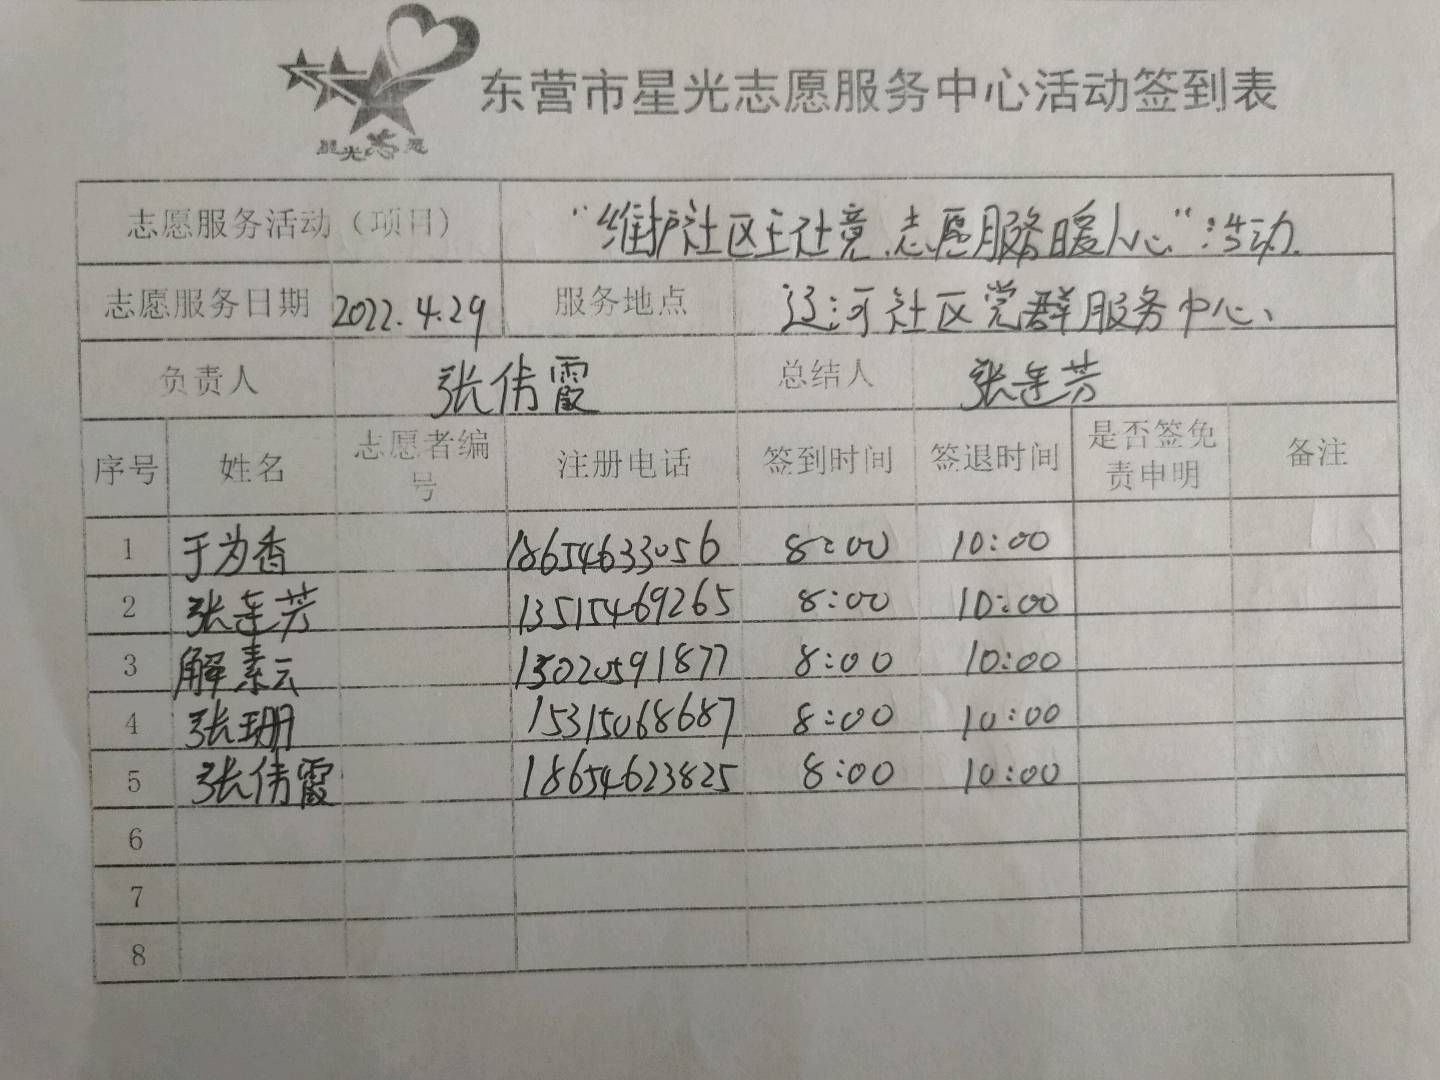 星光志愿
东营市星光志愿服务中心活动签到表
志愿服务活动（项目） "维护社区环境.志愿服务暖人心"活动.
志愿服务日期 2022.4.29 服务地点 辽河社区党群服务中心、
负责人 张倩霞 总结人 张莲芳
序号 姓名 志愿者编号 注册电话 签到时间 签退时间 是否签免责申明 备注
1 于为香 18654633056 8:00 10:00
2 张莲芳 13515469265 8:00 10:00
3 解素云 13020591877 8:00 10:00
4 张珊 15315068687 8:00 10:00
5 张倩霞 18654623825 8:00 10:00
6
7
8